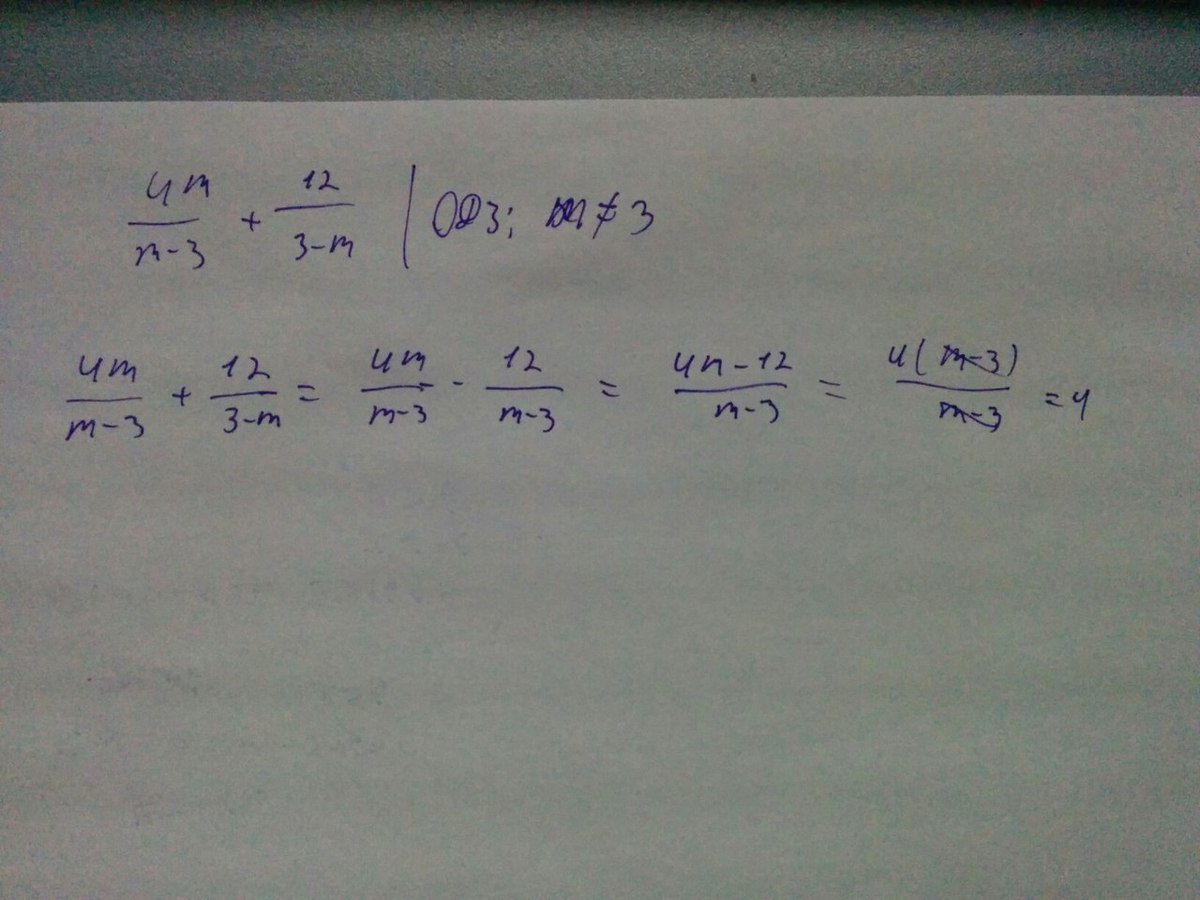 4m/(m-3) + 12/(3-m) | ОДЗ; m ≠ 3
4m/(m-3) + 12/(3-m) = 4m/(m-3) - 12/(m-3) = (4m-12)/(m-3) = 4(m-3)/(m-3) = 4